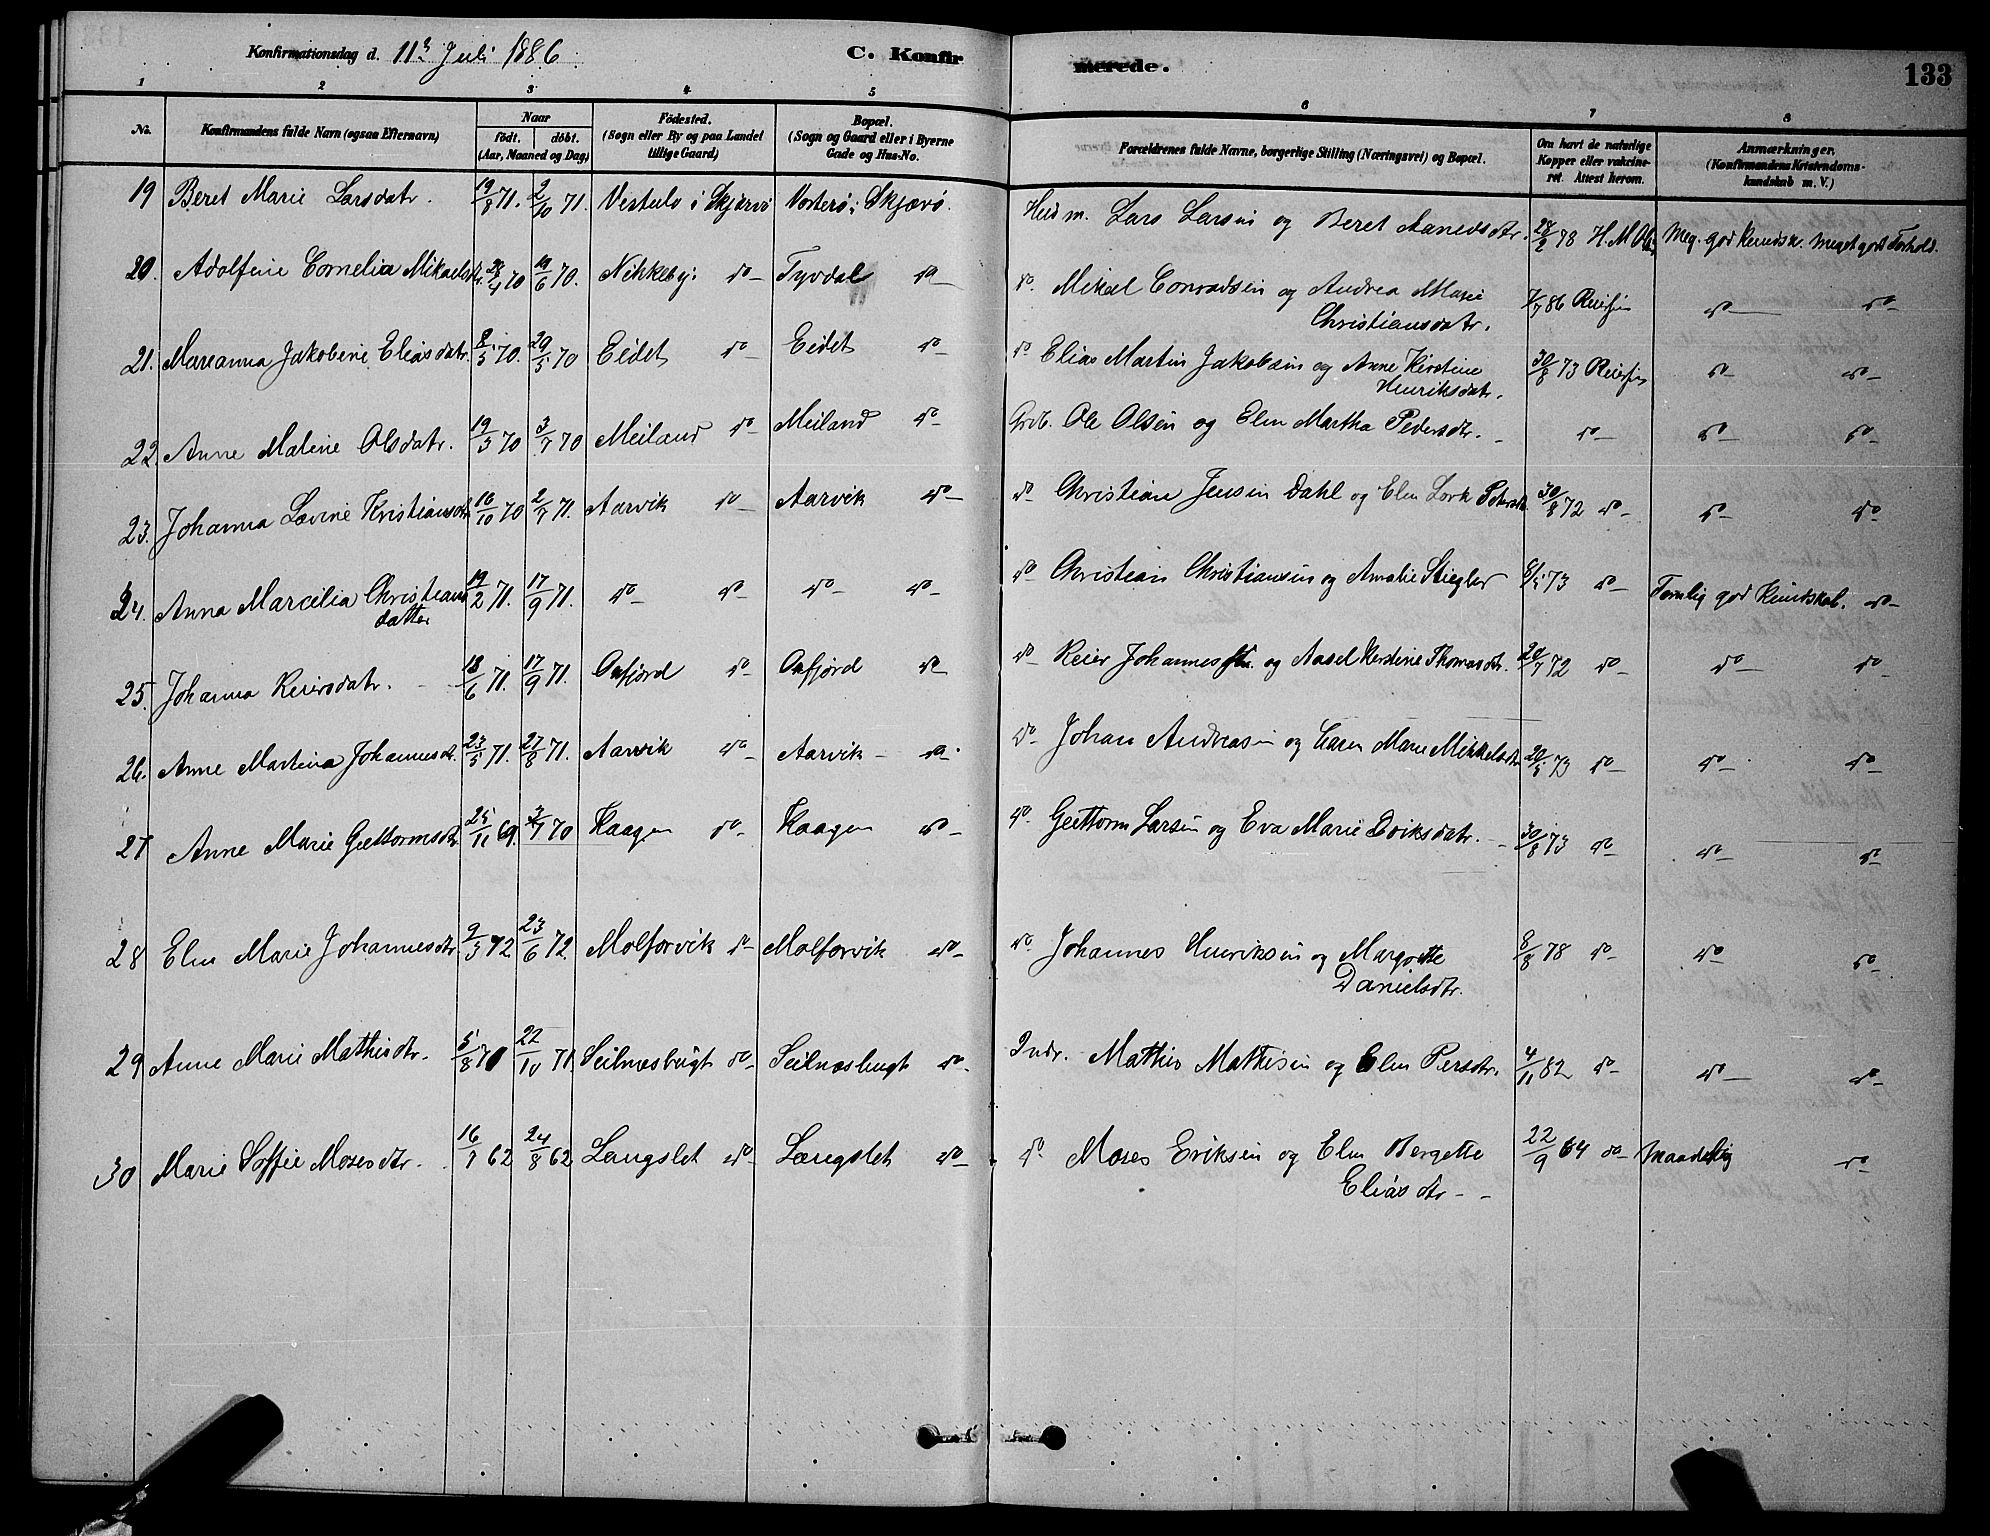 Konfirmationsdag d. 11te Juli 1886.
C. Konfirmerede.
133
1 2 3 4 5 6 7 8
No.
Konfirmandens fulde Navn (ogsaa Efternavn)
Naar
födt. döbt.
(Aar, Maaned og Dag)
Födested.
(Sogn eller By og paa Landet
tillige Gaard)
Bopæl.
(Sogn og Gaard eller i Byerne
Gade og Hus-No.
Forældrenes fulde Navne, borgerlige Stilling (Næringsvei) og Bopæl.
Om havt de naturlige
Kopper eller vakcine-
ret. Attest herom.
Anmærkninger.
(Konfirmandens Kristendoms-
kundskab m. V.)
19 Beret Marie Larsdatr. 19/8 71. 2/10 71. i Skjærvö i Skjærvö. Husm. Lars Larsen og Beret 28/2 78 Meg. god Kundsk. Meget godt Forhold.
20. Adolfine Cornelia Mikaelsdtr. 28/4 70 19/6 70. Nikkeby: do Tyvdal do do. Mikael Conradsen og Andrea Marie
Christiansdatr. 7/7 86 Reiersen do do
21. Mareanna Jakobine Eliasdatr. 8/5 70. 29/5 70 Eidet do Eidet do do Elias Martin Jakobsen og Anne Kirstine
Henriksdatr. 30/8 73 Reiersen do do
22. Anne Maline Olsdatr. 19/5 70 3/7 70 Meiland do Meiland do Grdb. Ole Olsen og Elen Martha Pedersdtr. do do do
23. Johanna Lovine Kristiansdtr 16/10 70 2/7 71. Aarvik do Aarvik do do Christian Jensen Dahl og Elen 30/8 72 do do do
24. Anna Marcelia Christians
datter 19/2 71. 17/9 71. do do do do do Christian Christiansen og Amalie Stiegler 8/5 73 do Temlig god Kundskab. do
25. Johanna Reiersdatr. 18/6 71. 17/9 71. Oxfjord do Oxfjord do do Reier Johannessen og Aasel Kerstine Thomasdtr. 20/7 72 do do do
26. Anne Martina Johannesdtr. 23/5 71. 27/8 71. Aarvik do Aarvik do. do Johan Andreasen og Karen Marie Mikkelsdtr 20/5 73 do do do
27 Anne Marie Guttormsdtr 25/11 69. 3/7 70 Kaagen do Kaagen do do. Guttorm Larsen og Eva Marie Eriksdatr. 30/8 73 do do do
28 Elen Marie Johannesdtr. 9/3 72 23/6 72 Molforvik do Molforvik do do. Johannes Henriksen og Margrethe
Danielsdtr. 8/8 78 do do do
29 Anne Marie Mathisdtr. 5/8 71 22/10 71 Seilnæsbugt do Seilnæsbugt do Indr. Mathis Mathisen og Elen Persdtr. 4/11 82 do do do
30 Marie Soffie Mosesdtr. 16/7 62 24/8 62 Langslet do Langslet do do Moses Eriksen og Elen Bergette
Eliasdtr 22/9 64 do maadelig do